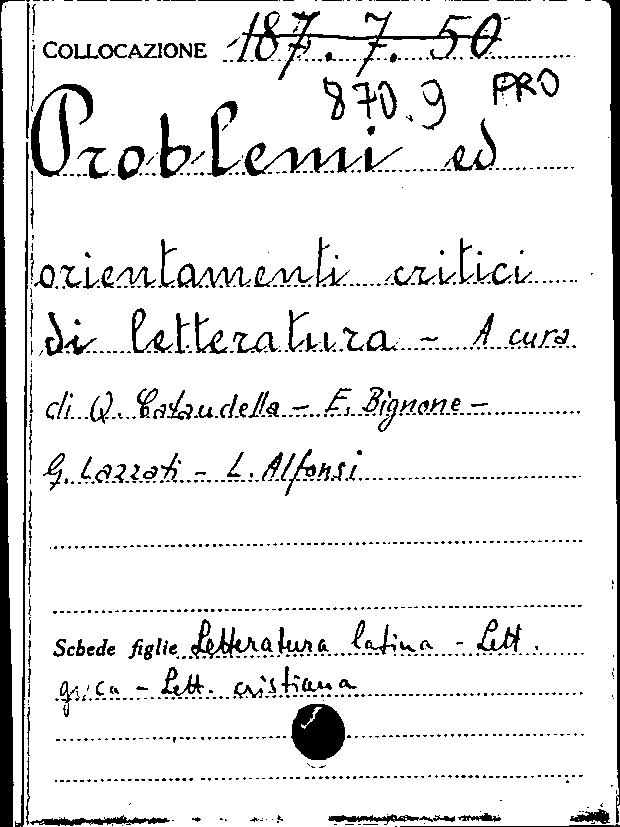 COLLOCAZIONE 187.7.50
870.9 PRO
Problemi ed
orientamenti critici
di letteratura - A cura
di Q. Cataudella - E. Bignone -
G. Lazzati - L. Alfonsi
Schede figlie Letteratura latina - Lett.
greca - Lett. cristiana